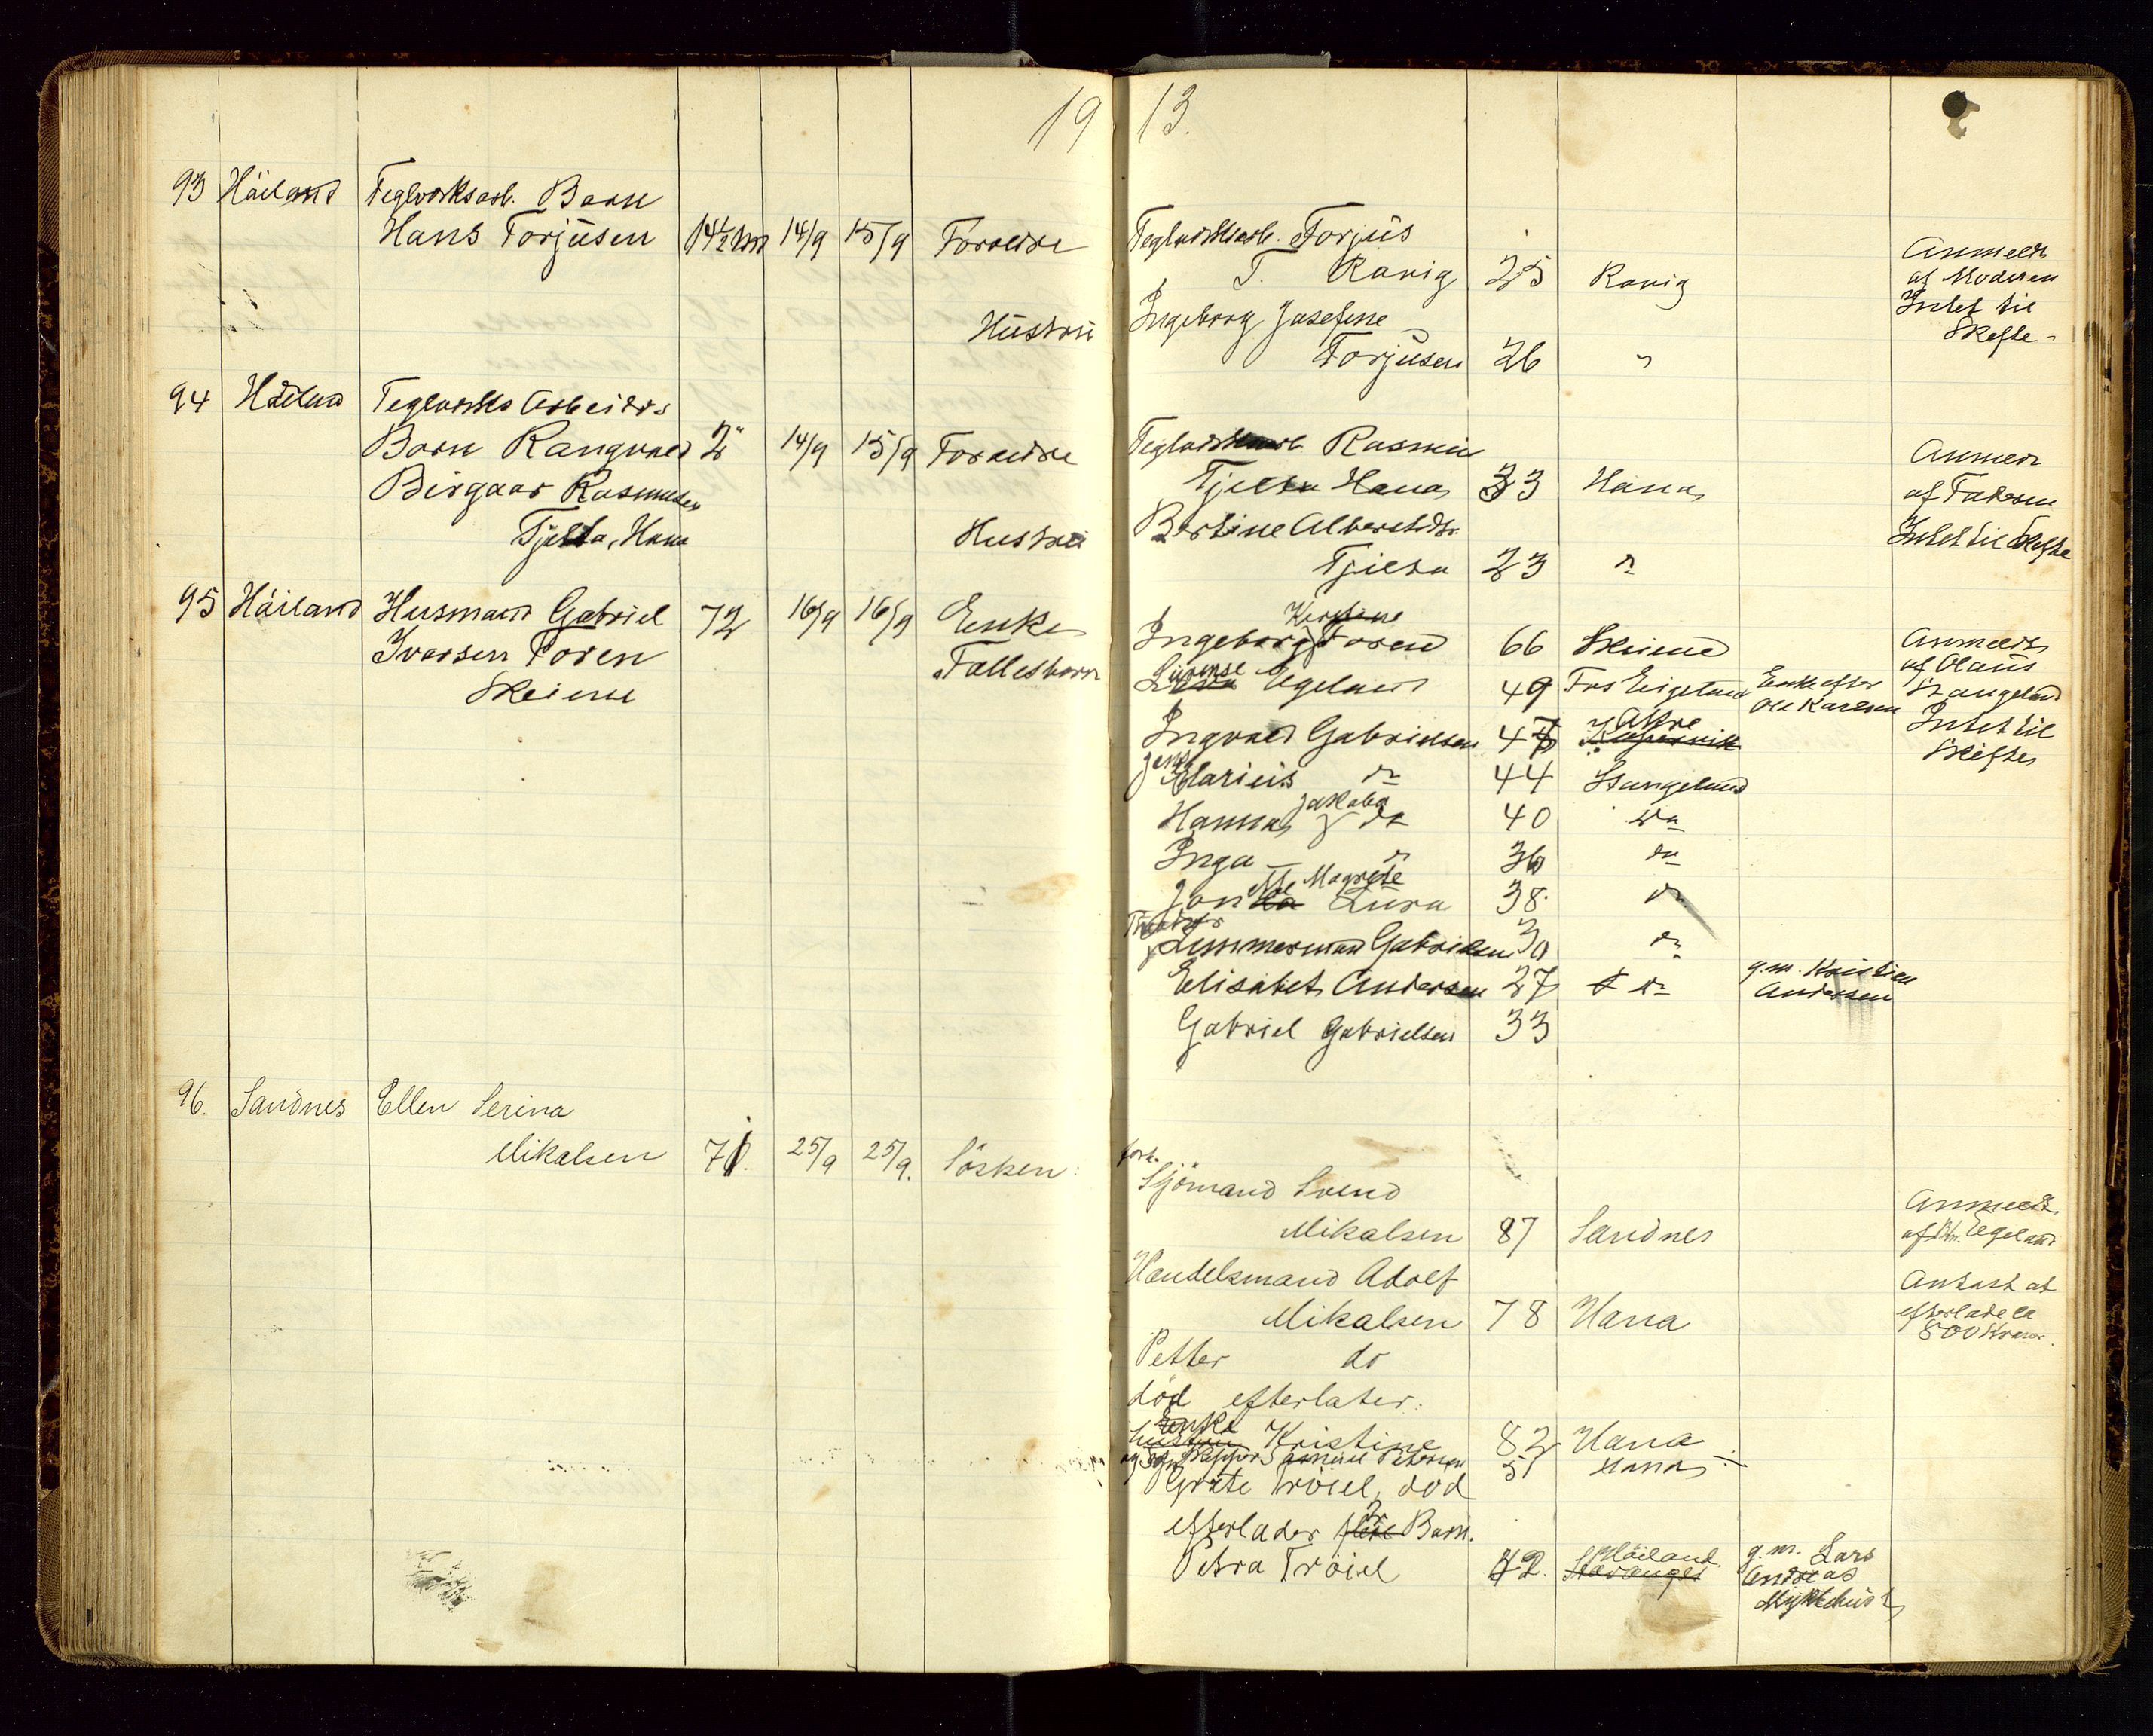 19 13.
93 Håiland Teglverksarb. Barn
Hans Torjusen 14½ M 14/9 15/9 Foreldre Teglverksarb. Torjus
T. Ravig 25 Ravig Anmeldt
af Moderen
Hustru Ingeborg Josefine Intet til
Skifte
Torjusen 26 "
94 Håiland Teglverks Arbeiders
Barn Rangvald 2" 14/9 15/9 Foreldre Teglverksarb. Rasmus
Birgaar Rasmusen Tjelta Hana 33 Hana Anmeldt
af Faderen
Tjelta, Hana Hustru Bertine Albertsdtr. Intet til Skifte
Tjelta 23 "
95 Håiland Husmand Gabriel 72 16/9 16/9 Enke Ingeborg Kirstine Foren 66 Skeiene Anmeldt
Iversen Foren Fallesbarn Egeland 49 Fos Eigeland Enke efter
Ole Karlsen af Olaus
Stangeland
Skeiene Ingvald Gabrielsen 47 Intet til
Skifte
Jens Marius do 44 Stangeland
Hanna Jakoba do 40 do
Inga do 36 do
Magrete Lura 38. do
Zimmerman Gabrielsen 30 do
Elisabet Andersen 27 do g.m. Kristian
Andersen
Gabriel Gabrielsen 33
96. Sandnes Ellen Serina
Mikalsen 71. 25/9 25/9. Søsken: forh.
Sjømand Svend
Mikalsen 87 Sandnes Anmeldt
af Egeland
Handelsmand Adolf
Mikalsen 78 Hana Antast at
efterlade ca
800 Kroner.
Petter do
død efterlater:
hustru Enke Kristine 82 Hana
og Søn Skipper Samuel Petersen 51 Hana
Grete Trøiel, død
efterlader flere 2 Barn.
Petra Trøiel 42. Stavanger Høiland. g.m. Lars
Andreas